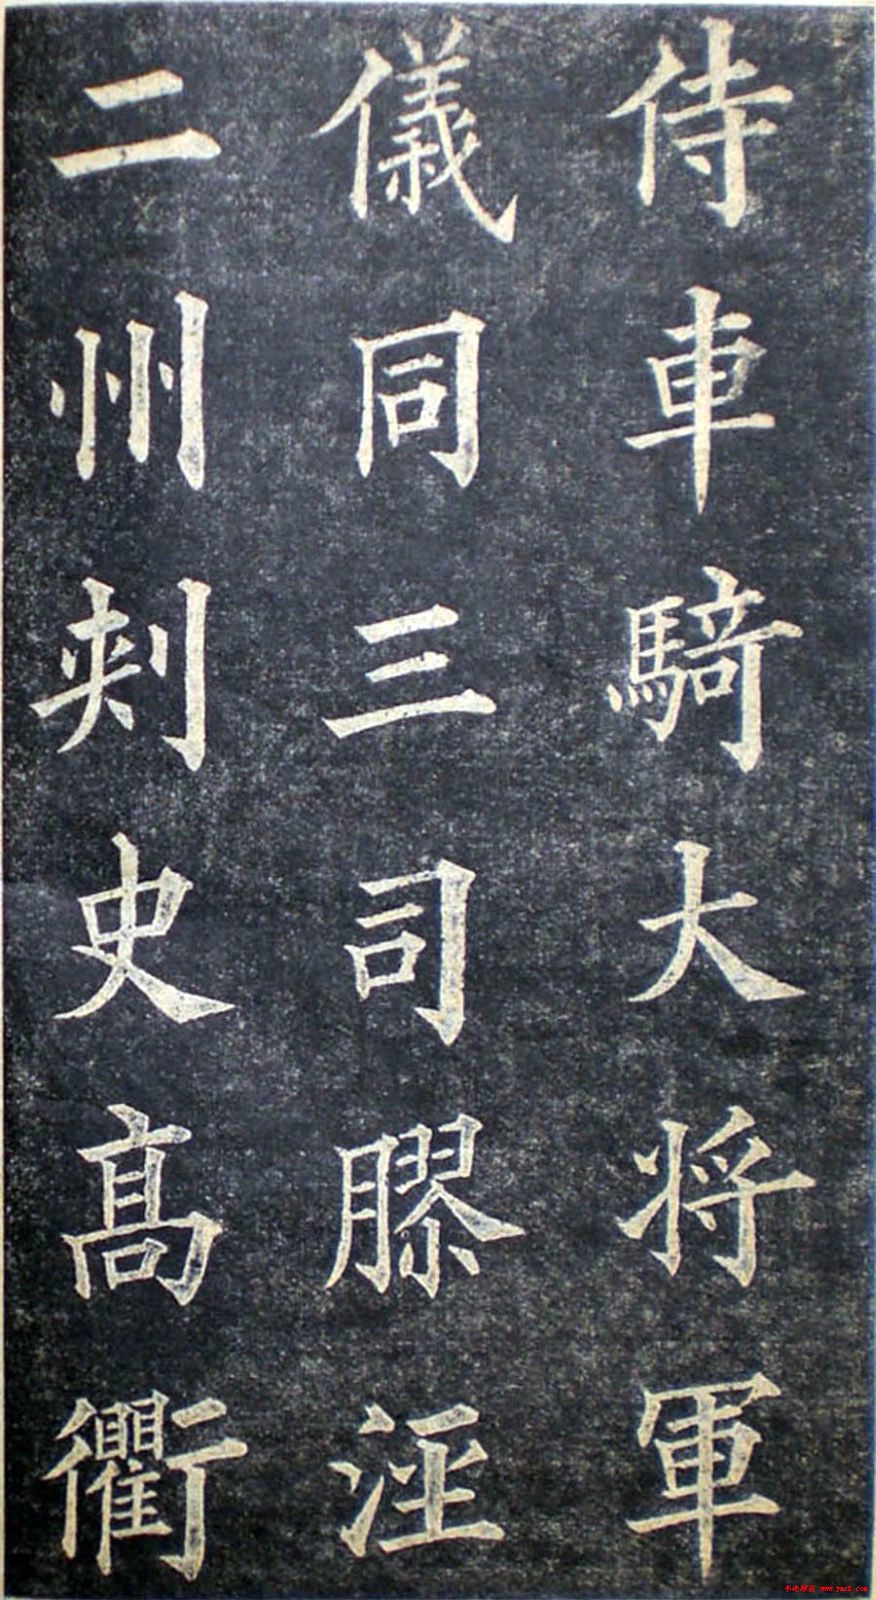 侍車騎大将軍
儀同三司膠涇
二州刾史髙衢
书法欣赏 www.yac8.com